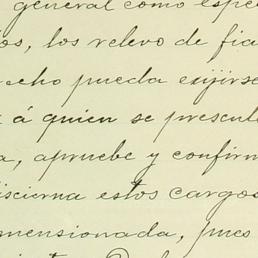 general como espe
os, los relevo de fia
recho pueda exijirse
á quien se presente
a, apruebe y confirm
iscierna estos cargos
mensionada, pues